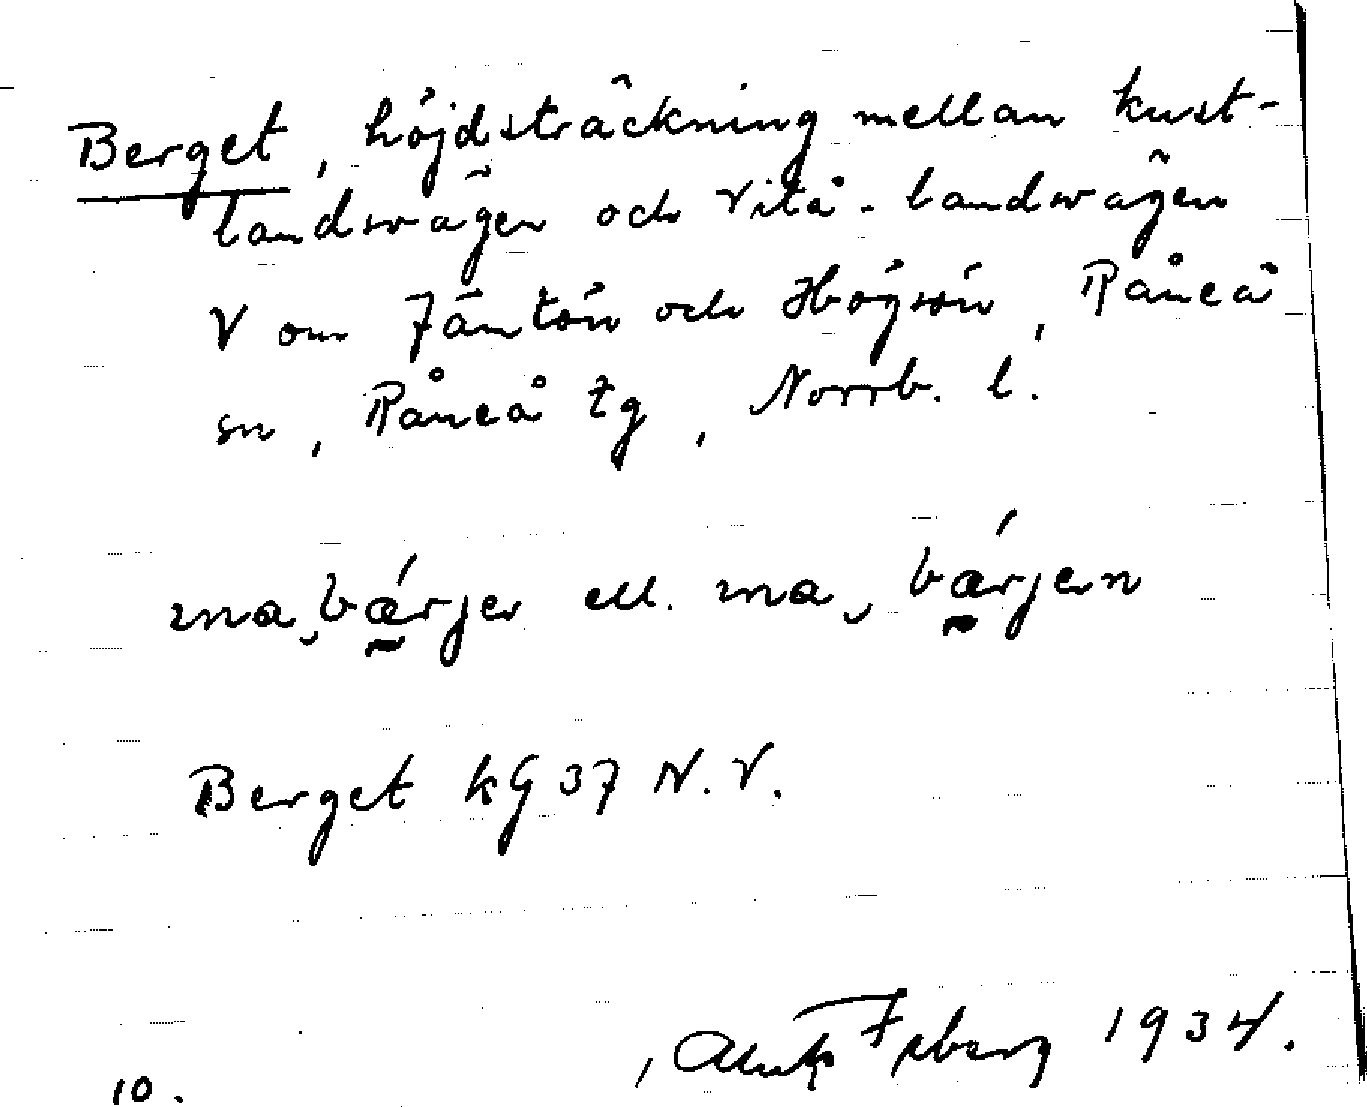 Berget, höjdsträckning mellan kust-
landsvägen och Vitå-landsvägen
V om Jämtön och Högsön, Råneå
sn, Råneå tg, Norrb. l.
ma, bǽrjer ell. ma, bǽrjern
Berget kG 37 N.V.
1934.
10.